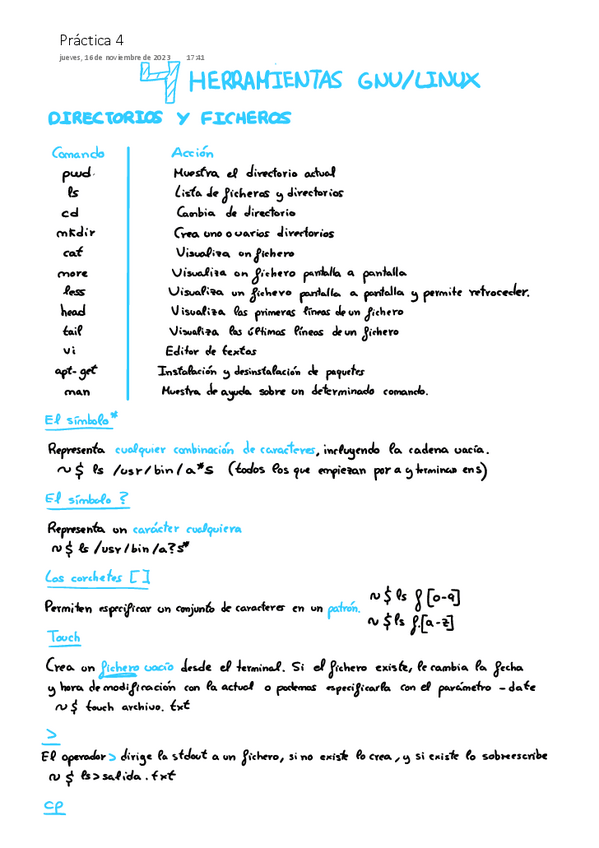 Práctica 4
jueves, 16 de noviembre de 2023 17:41
4 HERRAMIENTAS GNU/LINUX
DIRECTORIOS Y FICHEROS
Comando Acción
pwd. Muestra el directorio actual
ls Lista de ficheros y directorios
cd Cambia de directorio
mkdir Crea uno o varios directorios
cat Visualiza un fichero
more Visualiza un fichero pantalla a pantalla
less Visualiza un fichero pantalla a pantalla y permite retroceder.
head Visualiza las primeras líneas de un fichero
tail Visualiza las últimas líneas de un fichero
vi Editor de textos
apt-get Instalación y desinstalación de paquetes
man Muestra de ayuda sobre un determinado comando.
El símbolo *
Representa cualquier combinación de caracteres, incluyendo la cadena vacía.
~$ ls /usr/bin/a*s (todos los que empiezan por a y terminan en s)
El símbolo ?
Representa un carácter cualquiera
~$ ls /usr/bin/a?s*
Los corchetes []
~$ ls f[0-9]
Permiten especificar un conjunto de caracteres en un patrón.
~$ ls f.[a-z]
Touch
Crea un fichero vacío desde el terminal. Si el fichero existe, le cambia la fecha
y hora de modificación con la actual o podemos especificarla con el parámetro -date
~$ touch archivo.txt
>
El operador > dirige la stdout a un fichero, si no existe lo crea, y si existe lo sobreescribe
~$ ls>salida.txt
cp